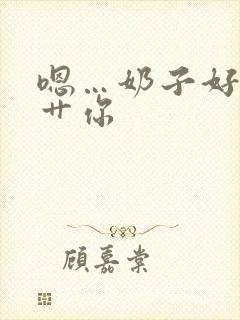 嗯…奶子好
艹你
顾嘉棠